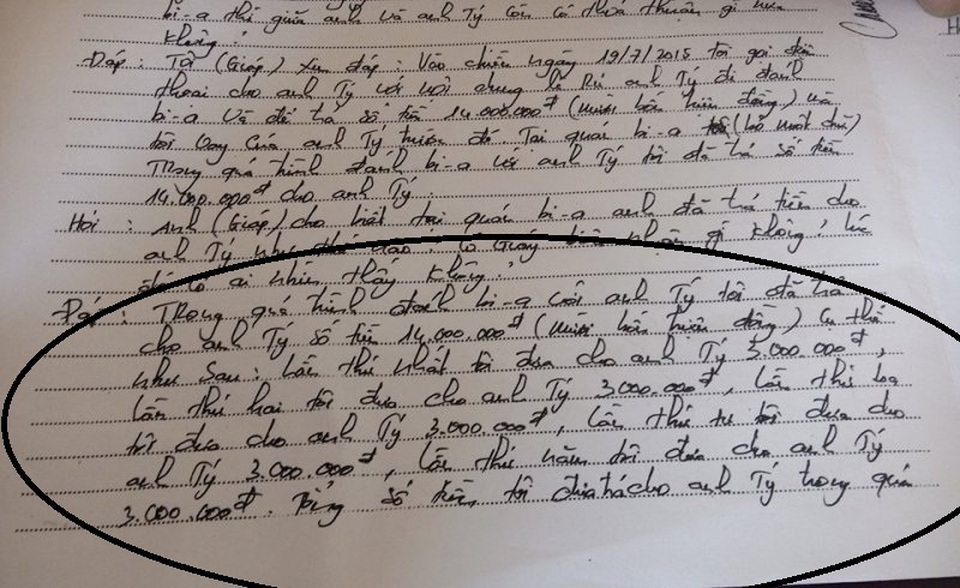 bi-a thì giữa anh và anh Tý còn có thoả thuận gì nữa
không?
Đáp: Tôi (Giáp) xin đáp: Vào chiều ngày 19/7/2015 tôi gọi điện
thoại cho anh Tý với nội dung là rủ anh Tý đi đánh
bi-a và để trả số tiền 14.000.000đ (mười bốn triệu đồng) mà
tôi vay của anh Tý trước đó. Tại quán bi-a (bỏ một chữ)
Trong quá trình đánh bi-a với anh Tý tôi đã trả số tiền
14.000.000đ cho anh Tý.
Hỏi: Anh (Giáp) cho biết tại quán bi-a anh đã trả tiền cho
anh Tý như thế nào? Có giấy biên nhận gì không? lúc
đó có ai nhìn thấy không?
Đáp: Trong quá trình đánh bi-a với anh Tý tôi đã trả
cho anh Tý số tiền 14.000.000đ (mười bốn triệu đồng) cụ thể
như sau: Lần thứ nhất tôi đưa cho anh Tý 3.000.000đ,
lần thứ hai tôi đưa cho anh Tý 3.000.000đ, lần thứ ba
tôi đưa cho anh Tý 3.000.000đ, lần thứ tư tôi đưa cho
anh Tý 3.000.000đ, lần thứ năm tôi đưa cho anh Tý
3.000.000đ. Tổng số tiền tôi đưa trả cho anh Tý trong quán